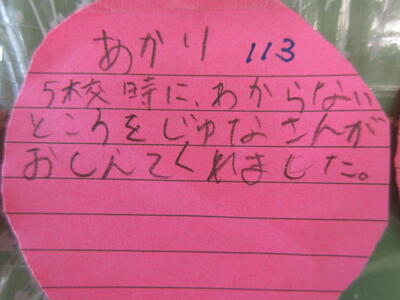 あかり 113
5校時に、わからない
ところをじゅなさんが
おしんてくれました。